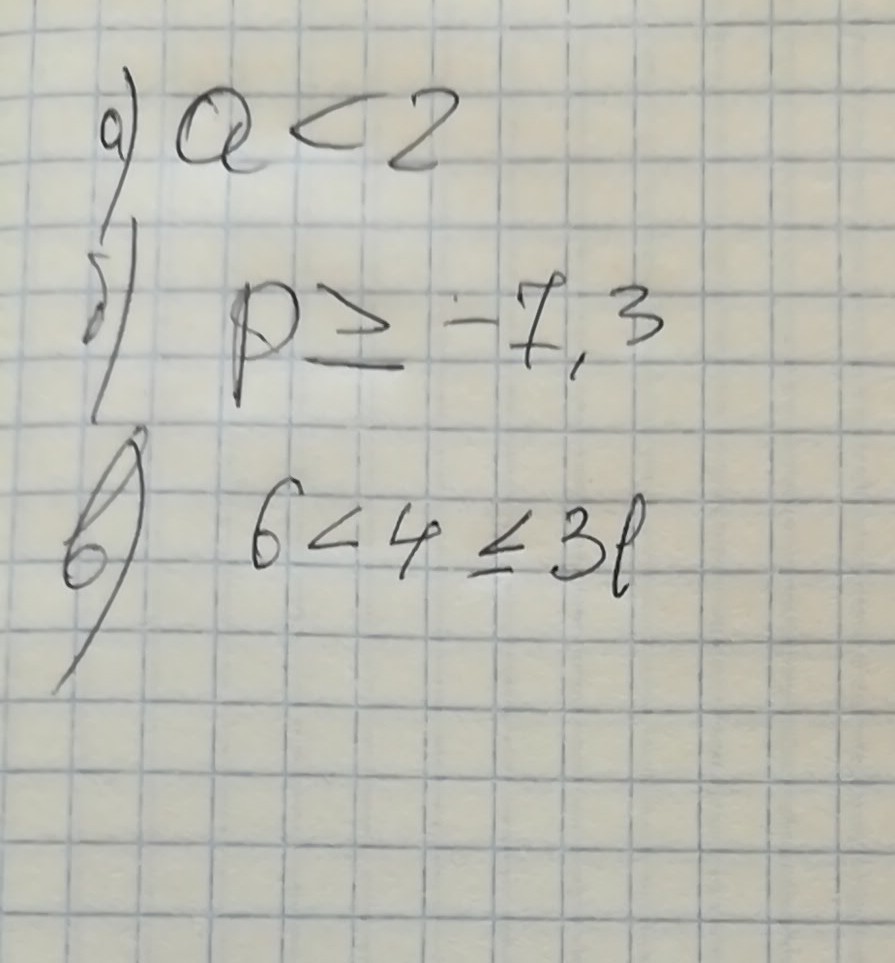 а) a < 2
б) p ≥ -7,3
в) 6 < 4 ≤ 3l